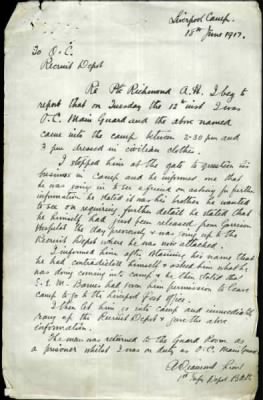 Liverpool Camp.
18th June 1917.
To O.C.
Recruit Depot
Re Pte Richmond A.H. I beg to
report that on Tuesday the 12th inst I was
O.C. Main Guard and the above named
came into the camp between 2-30 pm and
3 pm dressed in civilian clothes.
I stopped him at the gate to question his
business in Camp and he informed me that
he was going in to see a friend on asking for further
information he stated it was his brother he wanted
to see on requiring further details he stated that
he himself had just been released from Garrison
Hospital the day previously & was going up to the
Recruit Depot where he was now attached.
I informed him after obtaining his name that
he had contradicted himself & asked him what he
was doing coming into camp & he then stated that
S.S.M. Barnes had given him permission to leave
camp to go to the Liverpool Post Office.
I then let him go into camp and immediately
rang up the Recruit Depot & gave the above
information.
The man was returned to the Guard Room as
a prisoner whilst I was on duty as O.C. Main Guard
Lieut
1st Inf. Depot Batt.